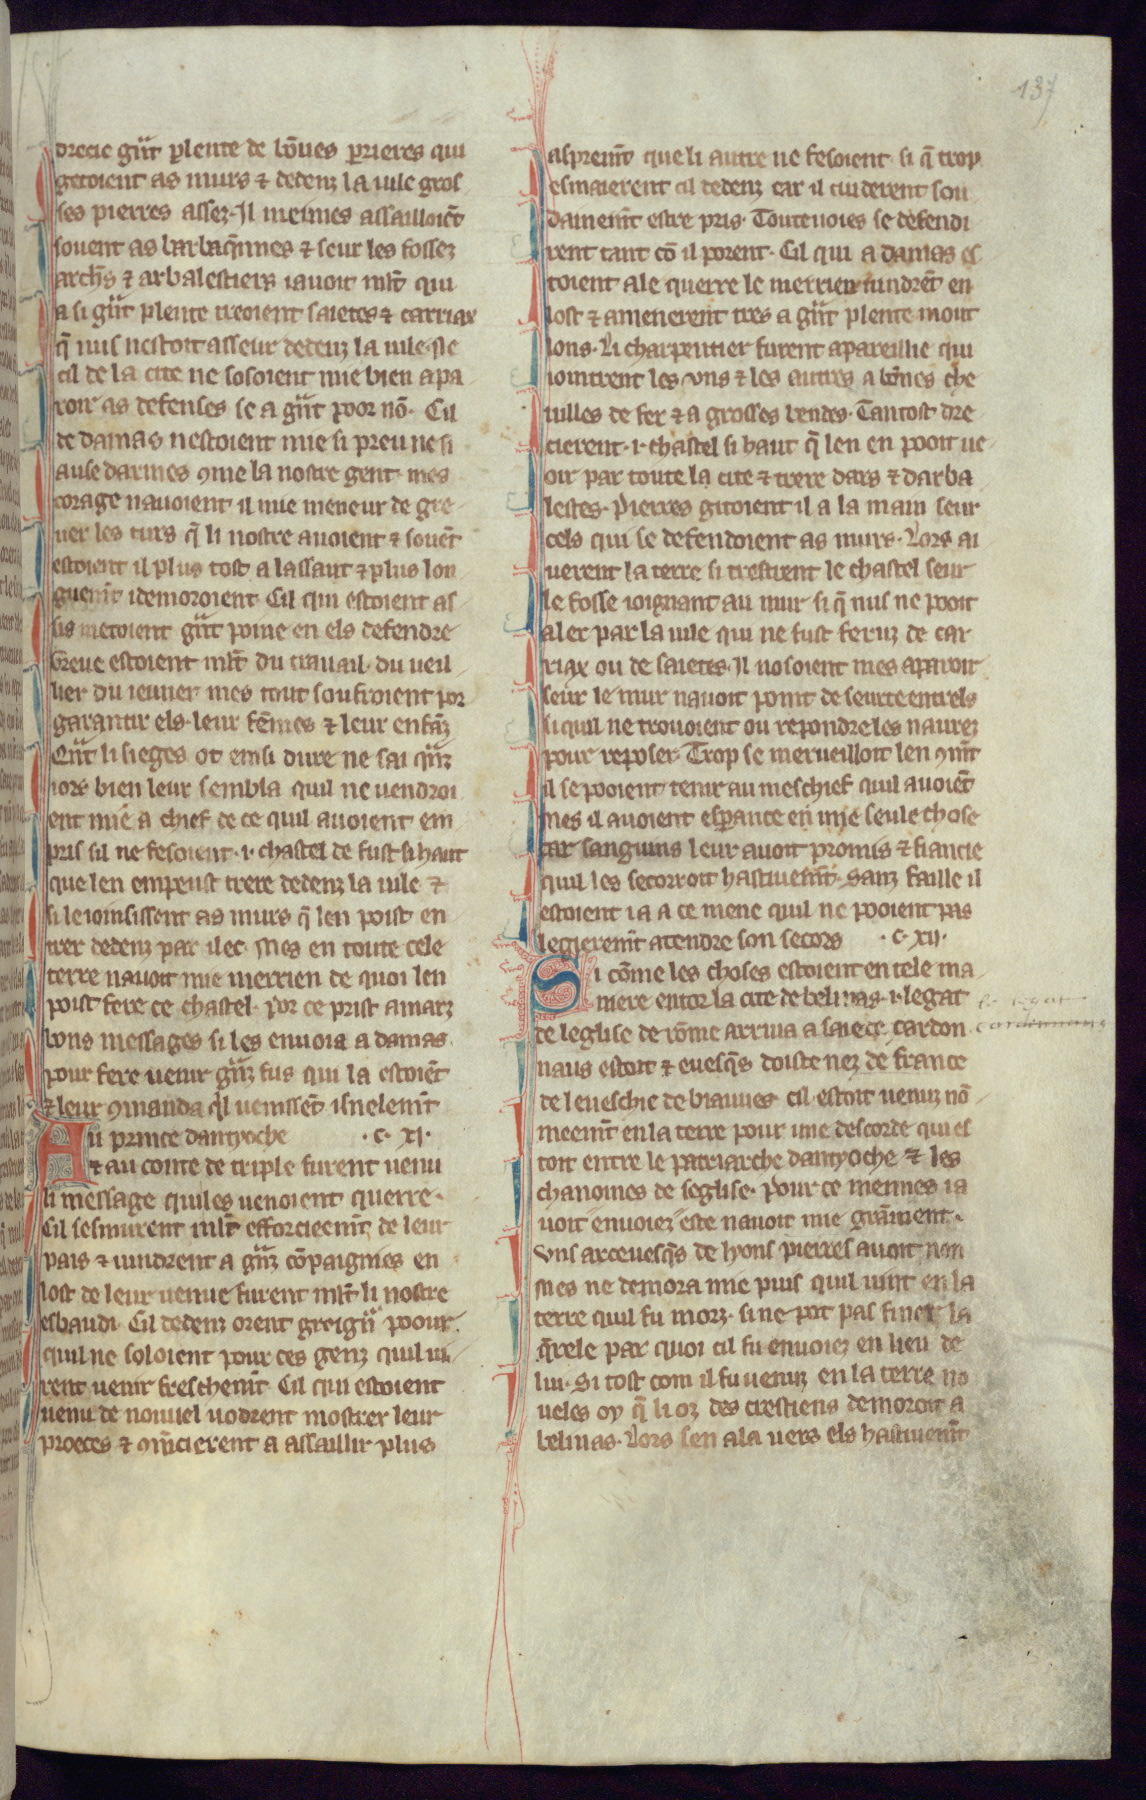 137
drecie gñt plente de bõnes perrieres qui
getoient as murs ⁊ dedenz la uile gros
ses pierres assez. Il meimes assailloiẽt
souent as barbaq̃nnes ⁊ seur les fossez
archrs ⁊ arbalestiers iauoit mlt̃ qui
a si gñt plente treoient saietes ⁊ carriax
q̃ nus nestoit asseur dedenz la uile. Ne
cil de la cite ne sosoient mie bien apa
roir as defenses se a gñt poor nõ. Cil
de damas nestoient mie si preu ne si
ause darmes 9me la nostre gent. mes
corage nauoient il mie meneur de gre
uer les turs q̃ li nostre auoient ⁊ souẽt
estoient il plus tost a lassaut ⁊ plus lon
guemt̃ idemoroient. Cil qui estoient as
sis metoient gñt poine en els defendre
Greue estoient mlt̃ du trauail. du ueil
lier du ieuner mes tout soufroient por
garantir els. leur fẽmes ⁊ leur enfãz
Qñt li sieges ot einsi dure ne sai qñz
iors bien leur sembla quil ne uendroi
ent mie a chief de ce quil auoient em
pris sil ne fesoient .i. chastel de fust si haut
que len empeust trere dedenz la uile ⁊
si le ioinsissent as murs q̃ len poist en
trer dedenz par ilec. Mes en toute cele
terre nauoit mie merrien de quoi len
poist fere ce chastel. Por ce prist amarz
bons messages si les enuoia a damas
pour fere uenir gñz fus qui la estoiẽt
⁊ leur 9manda ql̃ uenissẽt isnelemt̃
Au prince dantyoche .c. xj.
⁊ au conte de triple furent uenu
li message quiles uenoient querre.
Cil sesmurent mlt̃ efforcieemt̃ de leur
pais ⁊ uindrent a gñz cõpaignies en
lost de leur uenue furent mlt̃ li nostre
esbaudi. Cil dedenz orent greigñ poour
quil ne soloient pour ces genz quil ui
rent uenir freschemt̃. Cil qui estoient
uenu de nouuel uodrent mostrer leur
proeces ⁊ 9mẽcierent a assaillir plus
aspremt̃ que li autre ne fesoient. si q̃ trop
esmaierent cil dedenz car il cuiderent sou
dainemt̃ estre pris. Touteuoies se defendi
rent tant cõ il porent. Cil qui a damas es
toient ale querre le merrien uindrẽt en
lost ⁊ amenerent tres a gñt plente mout
lons. Li charpentier furent apareillie qui
iointrent les vns ⁊ les autres a bõnes che
uilles de fer ⁊ a grosses bendes. Tantost dre
cierent .i. chastel si haut q̃ len en pooit ue
oir par toute la cite ⁊ trere dars ⁊ darba
lestes. Pierres gitoient il a la main seur
cels qui se defendoient as murs. Lors ai
uerent la terre si trestrent le chastel seur
le fosse ioignant au mur si q̃ nus ne pooit
aler par la uile qui ne fust feruz de car
riax ou de saietes. Il nosoient mes aparoir
seur le mur nauoit point de seurte entrels
si quil ne trouoient ou repondre les naurez
pour reposer. Trop se merueilloit len 9mt̃
il se pooient tenir au meschief quil auoiẽt
mes il auoient esperance en une seule chose
car sanguins leur auoit promis ⁊ fiancie
quil les secorroit hastiuemt̃. Sanz faille il
estoient ia a ce mene quil ne pooient pas
legieremt̃ atendre son secors .c. xij.
Si cõme les choses estoient en tele ma
niere entor la cite de belinas .i. legat
de leglise de rõme arriua a saiete. cardon
naus estoit ⁊ euesq̃s doiste nez de france
de leueschie de biauues. cil estoit uenuz nõ
meemt̃ en la terre pour une descorde qui es
toit entre le patriarche dantyoche ⁊ les
chanoines de seglise. Pour ce meimes ia
uoit enuoiez este nauoit mie grãment.
vns arceuesq̃s de lyons pierres auoit non
Mes ne demora mie puis quil uint en la
terre quil fu morz. si ne pot pas finer la
q̃rele par quoi cil fu enuoiez en lieu de
lui. Si tost com il fu uenuz en la terre no
ueles oy q̃ li oz des crestiens demoroit a
belinas. Lors sen ala uers els hastiuemt̃
le legat